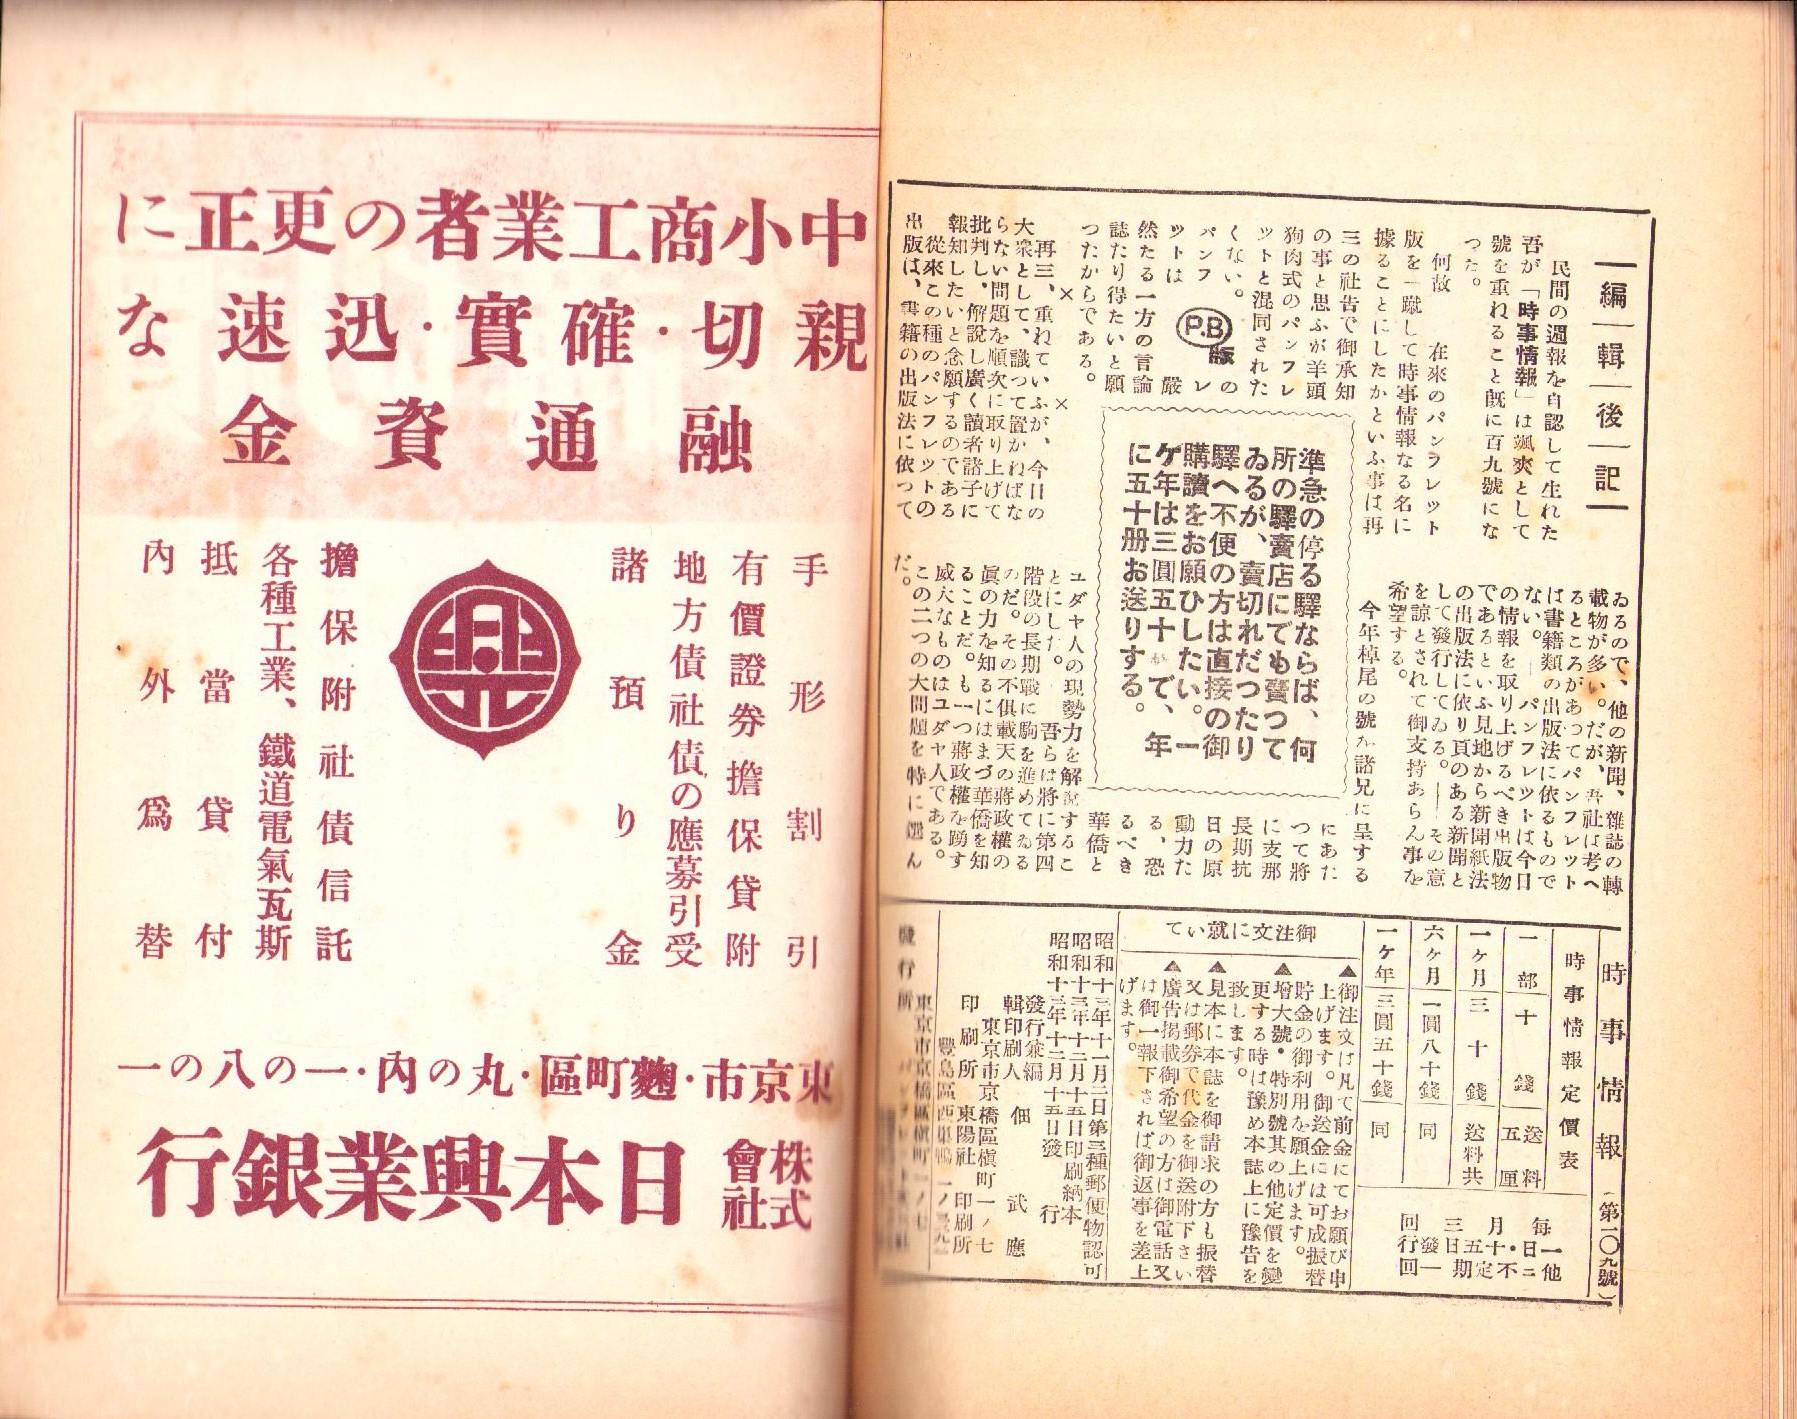 編輯後記
民間の週報を自認して生れた
吾が「時事情報」は颯爽として
號を重ねること既に百九號にな
つた。
何故 在來のパンフレット
版を一蹴して時事情報なる名に
據ることにしたかといふ事は再
三の社告で御承知
の事と思ふが羊頭
狗肉式のパンフレ
ットと混同された
くない。 P.B版の
パンフレ
ットは 嚴
然たる一方の言論
誌たり得たいと願
つたからである。
× ×
再三、重ねていふが、今日の
大衆として、識つて置かねばな
らない問題を順次に取り上げて
批判し、解說し廣く讀者諸子に
報知したいと念願するのである
從來この種のパンフレットの
出版は、書籍の出版法に依つて
ゐるので、他の新聞、雜誌の轉
載物が多い。だが、吾社は考へ
るところがあつてパンフレット
は書籍類の出版法に依るもので
ない。―パンフレットは今日
の情報を取り上げるべき出版物
であるといふ見地から新聞紙法
の出版法に依り頁のある新聞と
して發行してゐる。――その意
を諒とされて御支持あらん事を
希望する。
今年棹尾の號を諸兄に呈する
にあた
つて將
に支那
長期抗
日の原
動力た
る、恐
るべき
華僑と
ユダヤ人の現勢力を解說するこ
とにした。 吾らは將に第四
階段の長期戰に駒を進めてゐる
のだ。その不俱載天の蔣政權の
眞の力を知るにはまづ華僑を知
ることだ。も一つ蔣政權を踊す
威大なものはユダヤ人である。
この二つの大問題を特に選ん
だ。
準急の停る驛ならば、何
所の驛賣店にでも賣つて
ゐるが、賣切れだつたり
驛へ不便の方は直接の御
購讀をお願ひしたい。一
ケ年は三圓五十で、年
に五十册お送りする。
時事情報(第一〇九號)
時事情報定價表
一部 十錢 送料五厘
一ケ月 三十錢 送料共
六ケ月 一圓八十錢 同
一ケ年 三圓五十錢 同
每月三回
一日・十五日發行
他ニ不定期一回
御注文に就いて
▲御注文は凡て前金にてお願び申
上げます。御送金には可成振替
貯金の御利用を願上げます。
▲增大號・特別號其の他定價を變
更する時は豫め本誌上に豫告を
致します。
▲見本に本誌を御請求の方も振替
又は郵券で代金を御送附下さい
▲廣告揭載御希望の方は御電話又
は御一報下されば御返事を差上
げます。
昭和十三年十一月二日第三種郵便物認可
昭和十三年十二月十五日印刷納本
昭和十三年十二月十五日發行
發行兼編
輯印刷人 佃武應
東京市京橋區槇町一ノ七
印刷所 東陽社印刷所
豐島區西巢鴨
發行所
東京市京橋區槇町一ノ七
中小商工業者の更正に
親切・確實・迅速な
融通資金
手形割引
有價證券擔保貸附
地方債社債の應募引受
諸預り金
擔保附社債信託
各種工業、鐵道電氣瓦斯
抵當貸付
內外爲替
東京市・麴町區・丸の內・一の八の一
株式會社 日本興業銀行